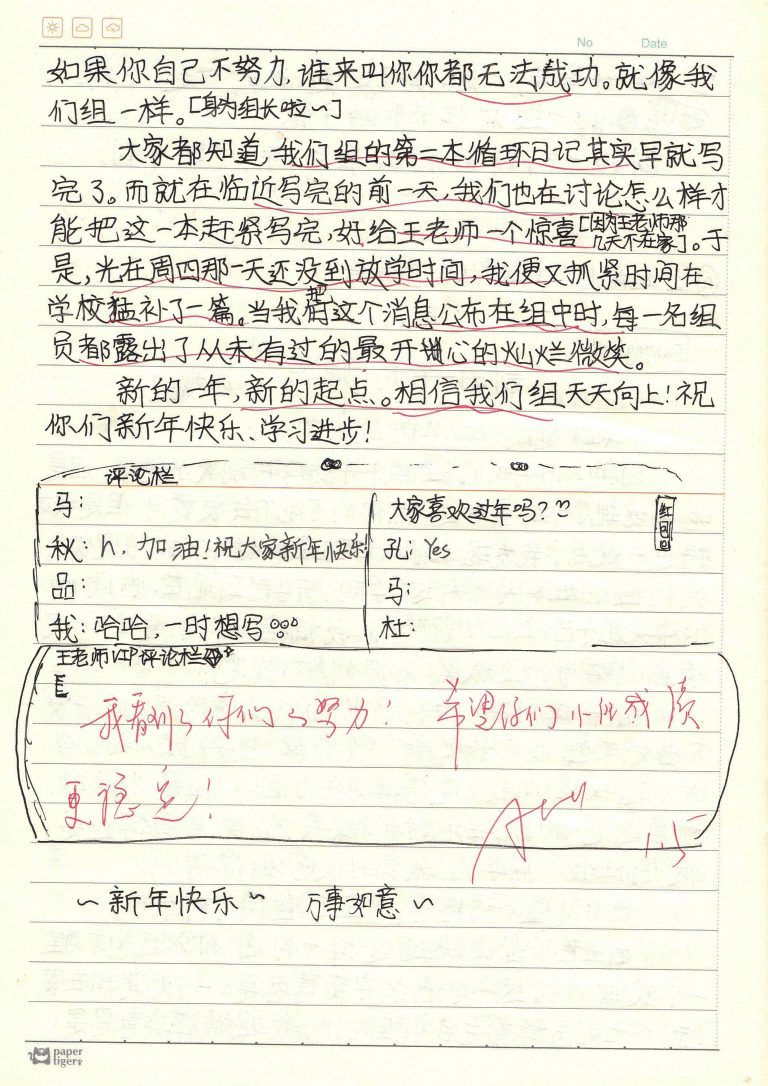 No Date
如果你自己不努力,谁来叫你你都无法成功。就像我
们组一样。[身为组长啦~]
大家都知道,我们组的第二本循环日记其实早就写
完了。而就在临近写完的前一天,我们也在讨论怎么样才
能把这一本赶紧写完,好给王老师一个惊喜[因为王老师那几天不在家]。于
是,光在周四那一天还没到放学时间,我便又抓紧时间在
学校猛补了一篇。当我把这个消息公布在组中时,每一名组
员都露出了从未有过的最开心的灿烂微笑。
新的一年,新的起点。相信我们组天天向上!祝
你们新年快乐、学习进步!
评论栏
马:
秋:h,加油!祝大家新年快乐
品:
我:哈哈,一时想写。。。
大家喜欢过年吗?
孔:Yes
马:
杜:
红包
王老师VIP评论栏
我看到了你们的努力!希望你们小组成绩
更稳定!
1.5
~新年快乐~ 万事如意~
paper
tiger